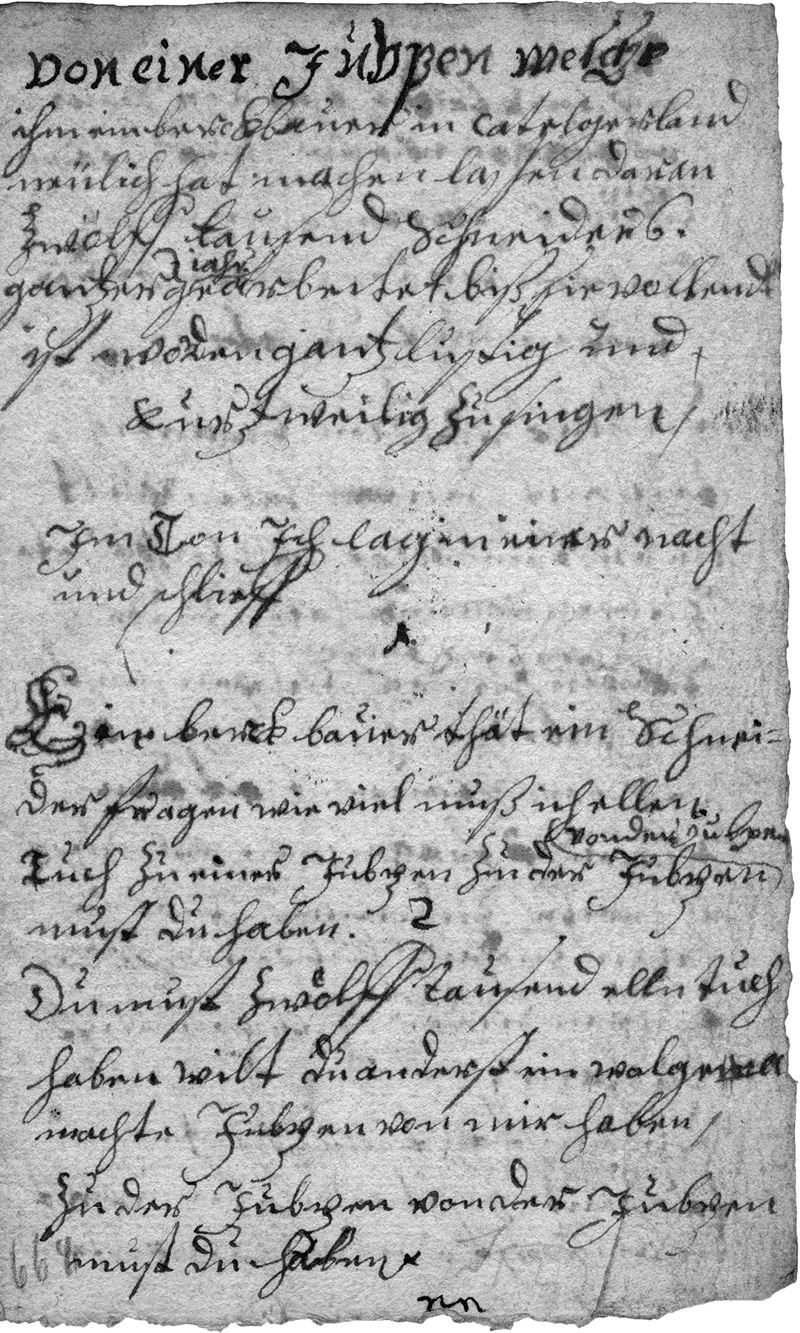 Von einer Jubpen welche
ihm ein berckbauer in Catelgersland
neülich hat machen lassen daran
Zwölff tausend Schneider 6.
jahr
gantzer gearbeitet biß sie vollend
ist worden gantz lustig und
Kurtzweilig Zu singen /
Im Ton Ich lag in einer nacht
und schlieff
1.
Ein berck bauer thät ein Schnei=
der fragen wie viel muß ich ellen
von der Jubpen
Tuch Zu einer Jubpen Zu der Jubpen
must du haben. 2
Du must Zwölff tausend elln tuch
haben wilt du anderst ein wol
machte Jubpen von mir haben /
Zu der Jubpen von der Jubpen
must du haben